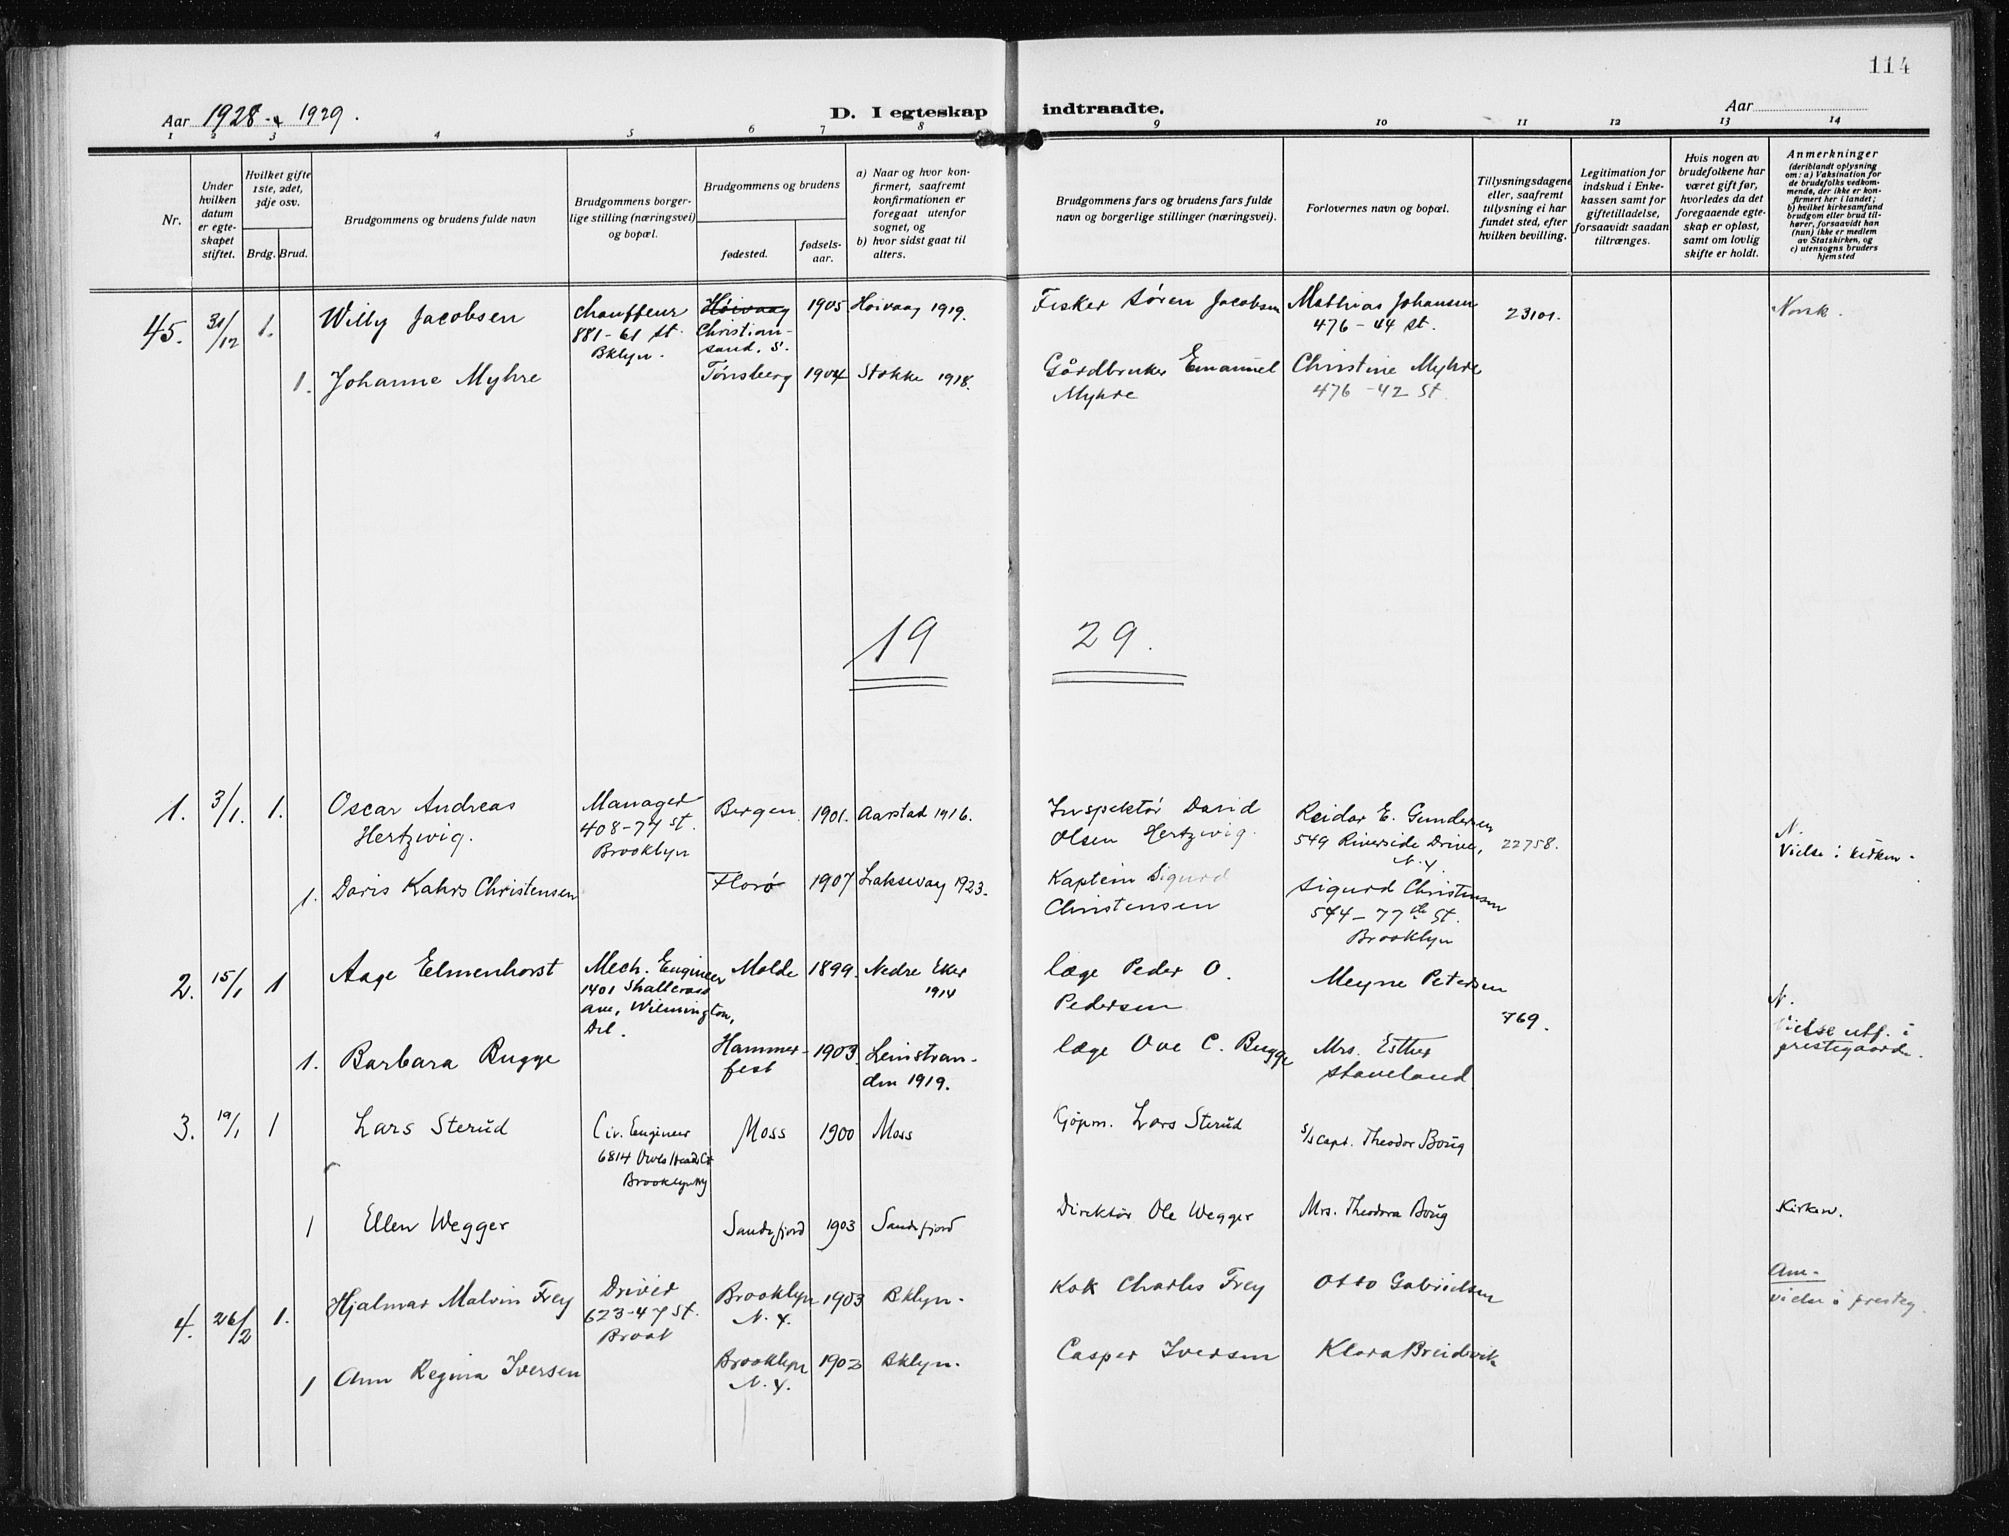 114
Aar 1928 & 1929.
D. I egteskap indtraadte.
Aar
1 2 3 4 5 6 7 8 9 10 11 12 13 14
Nr.
Under hvilken datum er egteskapet stiftet.
Hvilket gifte 1ste, 2det, 3dje osv.
Brdg. Brud.
Brudgommens og brudens fulde navn
Brudgommens borgerlige stilling (næringsvei) og bopæl.
Brudgommens og brudens
fødested.
fødselsaar.
a) Naar og hvor konfirmert, saafremt konfirmationen er foregaat utenfor sognet, og
b) hvor sidst gaat til alters.
Brudgommens fars og brudens fars fulde navn og borgerlige stillinger (næringsvei).
Forlovernes navn og bopæl.
Tillysningsdagene eller, saafremt tillysning ei har fundet sted, efter hvilken bevilling.
Legitimation for indskud i Enkekassen samt for giftetilladelse, forsaavidt saadan tiltrænges.
Hvis nogen av brudefolkene har været gift før, hvorledes da det foregaaende egteskap er opløst, samt om lovlig skifte er holdt.
Anmerkninger
(deriblandt oplysning om: a) Vaksination for de brudefolks vedkommende, der ikke er konfirmert her i landet; b) hvilket kirkesamfund brudgom eller brud tilhører, forsaavidt han (hun) ikke er medlem av Statskirken, og c) utensogns bruders hjemsted
45. 31/12 1. Willy Jacobsen chauffeur 881-61 St. Bklyn. Høivaag Christiansand. S. 1905 Høivaag 1919. Fisker Søren Jacobsen Mathias Johansen 476-44 St. 23101. Norsk.
1. Johanne Myhre Tønsberg 1904 Stokke 1918. Gårdbruker Emanuel Myhre Christine Myhre 476-42 St.
19 29.
1. 3/1. 1. Oscar Andreas Hertzwig. Manager 408-77 St. Brooklyn Bergen 1901. Aarstad 1916. Inspektør David Olsen Hertzwig. Reidar E. Gundersen 549 Riverside Drive, N.Y. 22758. N. Vielse i kirken.
1. Doris Kahrs Christensen Florø 1907 Laksevaag 1923. Kaptein Sigurd Christensen Sigurd Christensen 544-77th St. Brooklyn
2. 15/1 1 Aage Elmenhorst Mech. Engineer 1401 ave, Wilmington, Del. Molde 1899. Nedre Eker 1914 læge Peder O. Pedersen Meyne Petersen 769. N. Vielse utf. i prestegaarden.
1. Barbara Bugge Hammerfest 1903. Leinstranden 1919. læge Ove C. Bugge Mrs. Esther Staveland
3. 19/1 1 Lars Sterud Civ. Engineer 6814 Owls Head Ct Brooklyn NY Moss 1900 Moss Kjøpm. Lars Sterud S/S Capt. Theodor Borg
1 Ellen Wegger Sandefjord 1903 Sandefjord Direktør Ole Wegger Mrs. Theodora Borg Kirken.
4. 26/2 1. Hjalmar Malvin Frey Driver 623-47 St. Brook Brooklyn N.Y. 1903 Bklyn. Kok Charles Frey Otto Gabrielsen Am- vielse i presteg.
1 Ann Regina Iversen Brooklyn N.Y. 1902 Bklyn. Casper Iversen Klara Breidvik